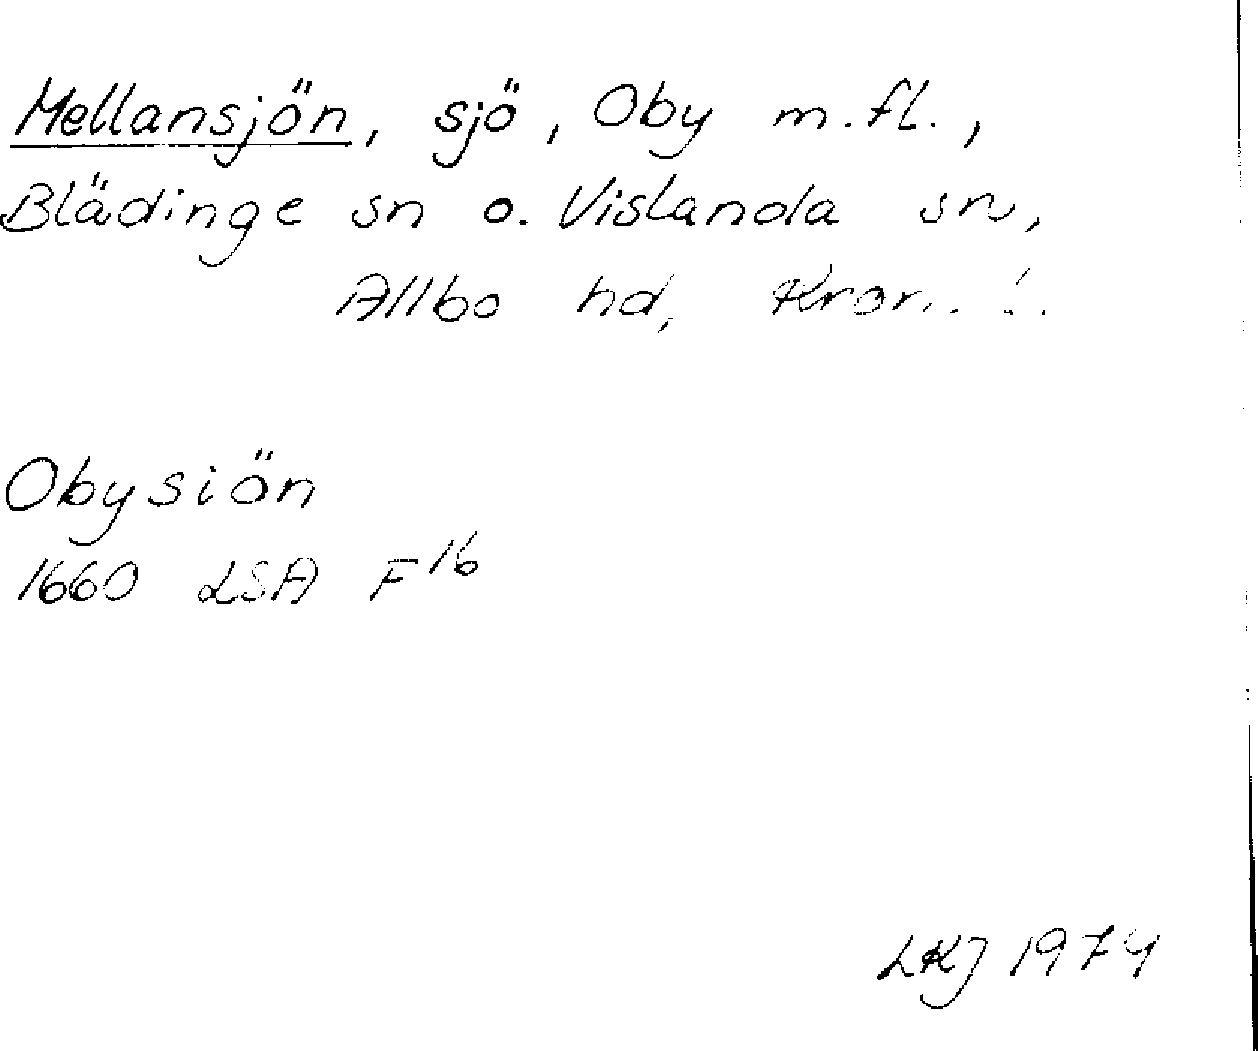 Mellansjön, sjö, Oby m.fl.,
Blädinge sn o. Vislanda sn,
Allbo hd,
Obysiön
1660 LSA F16
LKJ 1974